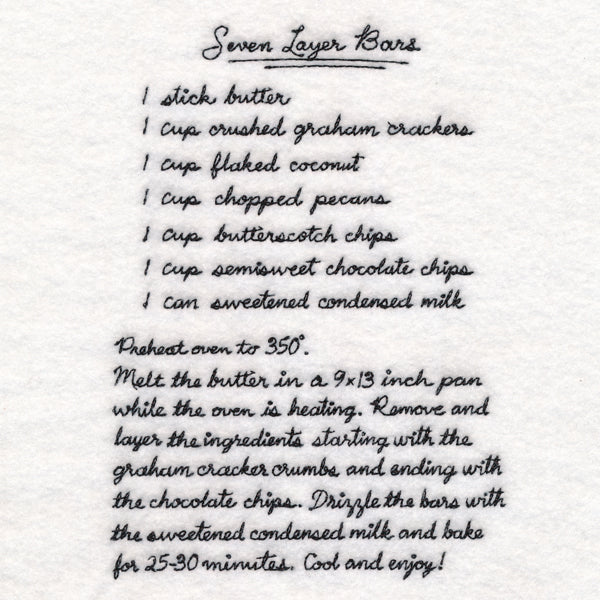 Seven Layer Bars
1 stick butter
1 cup crushed graham crackers
1 cup flaked coconut
1 cup chopped pecans
1 cup butterscotch chips
1 cup semisweet chocolate chips
1 can sweetened condensed milk
Preheat oven to 350°.
Melt the butter in a 9x13 inch pan
while the oven is heating. Remove and
layer the ingredients starting with the
graham cracker crumbs and ending with
the chocolate chips. Drizzle the bars with
the sweetened condensed milk and bake
for 25-30 minutes. Cool and enjoy!